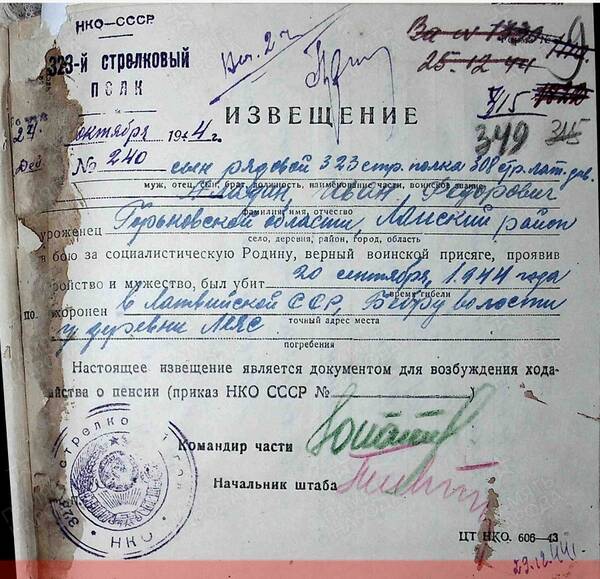 НКО—СССР
323-й стрелковый
ПОЛК
За № 1330
25.12.44
7/15
349 315
ИЗВЕЩЕНИЕ
27 октября 1944 г.
№ 240 сын рядовой 323 стр. полка 308 стр. лат. див.
муж, отец, сын, брат, должность, наименование части, воинское звание
Иван Федорович
фамилия, имя, отчество
уроженец Горьковской области, Лаишский район
село, деревня, район, город, область
в бою за социалистическую Родину, верный воинской присяге, проявив
ройство и мужество, был убит 20 сентября, 1944 года
время гибели
по хоронен в Латвийской ССР, волости
у деревни Лейс
точный адрес места
погребения
Настоящее извещение является документом для возбуждения хода-
айства о пенсии (приказ НКО СССР № )
Командир части
Начальник штаба
НКО
ЦТ НКО. 606—43
29.12.44г.